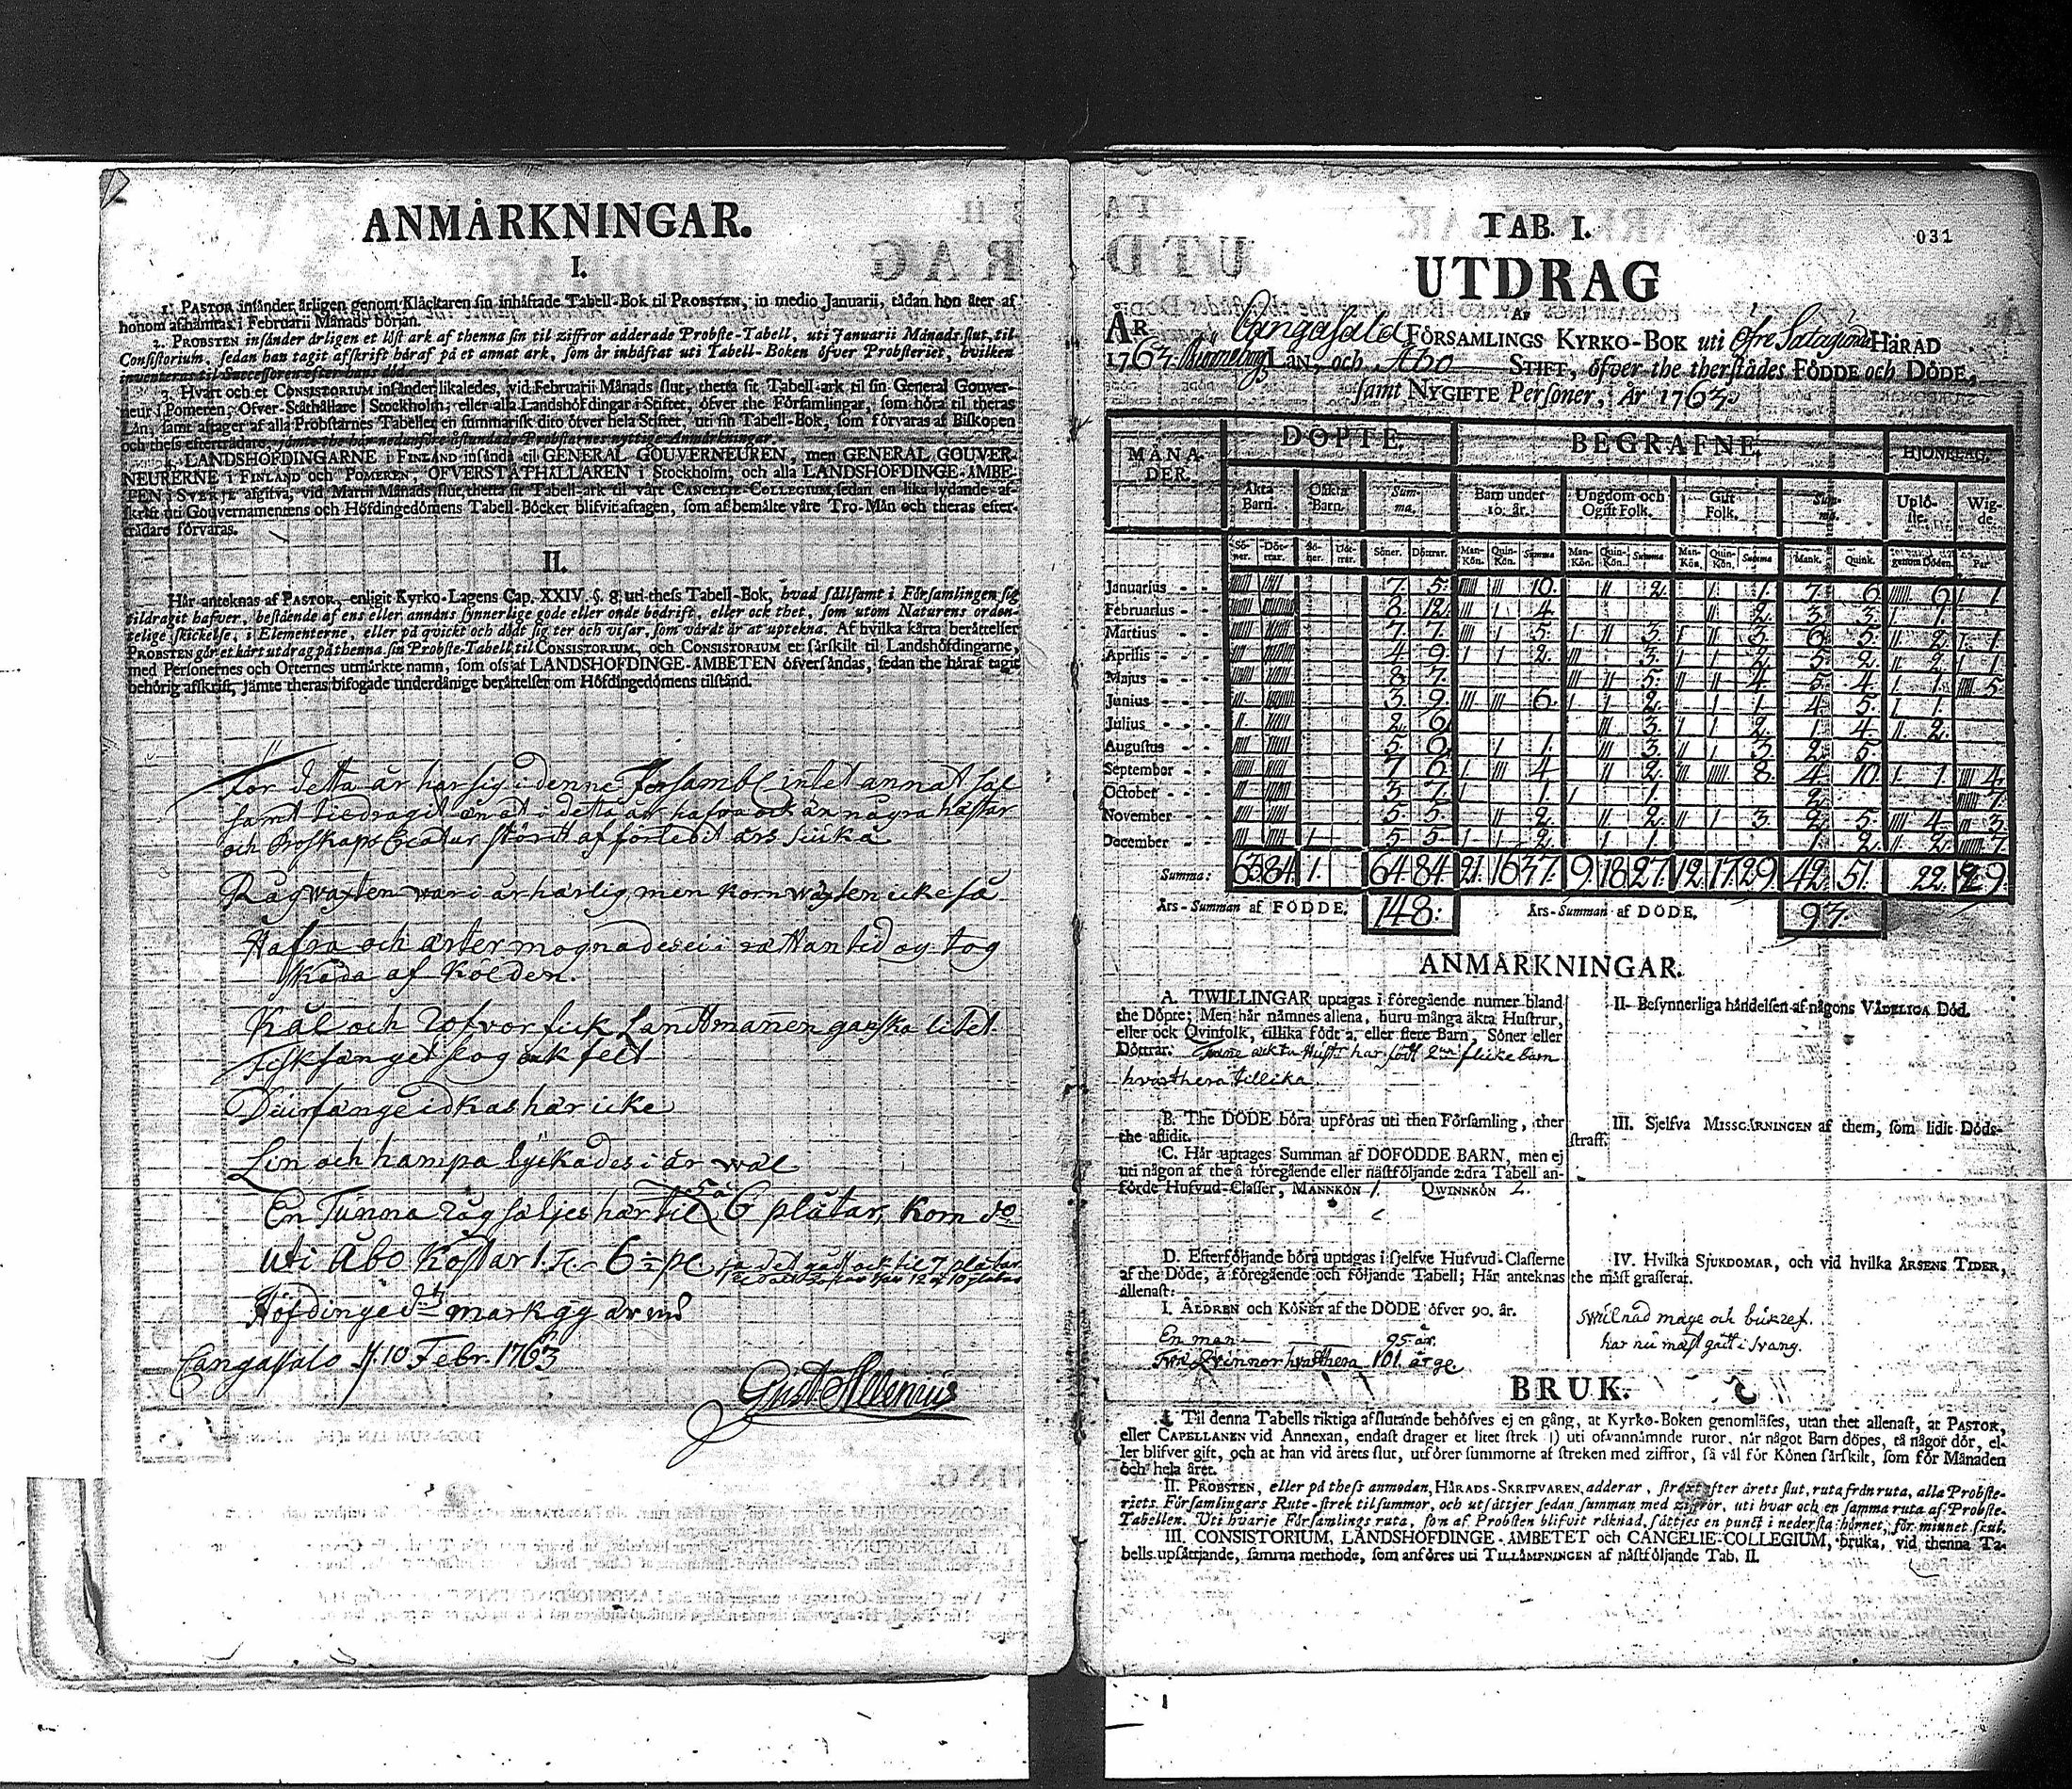 ANMÅRKNINGAR.
I.
1. PASTOR insånder årligen genom Klåckaren sin inhåftade Tabell-Bok til PROBSTEN, in medio Januarii, tådan hon åter af
honom afhåmtas i Februarii Månads början.
2. PROBSTEN insånder årligen et löst ark af thenna sin til ziffror adderade Probste-Tabell, uti Januarii Månads slut, til
Consistorium, sedan han tagit afskrift håraf på et annat ark, som år inhåftat uti Tabell-Boken öfver Probsteriet, hvilken
inventeras til Successoren efter hans död.
3. Hvart och et CONSISTORIUM insånder likaledes, vid Februarii Månads slut, thetta sit Tabell-ark til sin General Gouver-
neur i Pomeren, Öfver-Ståthållare i Stockholm, eller alla Landshöfdingar i Stiftet, öfver the Församlingar, som höra til theras
Lån, samt aftager af alla Probstarnes Tabeller en summarisk dito öfver hela Stiftet, uti sin Tabell-Bok, som förvaras af Biskopen
och thess eftertrådare, jåmte the hår nedanföre åstundade Probstarnes nyttige Anmårkningar.
4. LANDSHÖFDINGARNE i FINLAND insånda til GENERAL GOUVERNEUREN, men GENERAL GOUVER-
NEURERNE i FINLAND och POMEREN, ÖFVERSTÅTHÅLLAREN i Stockholm, och alla LANDSHÖFDINGE-ÅMBE-
TEN i SVERJE afgifva, vid Martii Månads slut, thetta sit Tabell-ark til vårt CANCELIE-COLLEGIUM, sedan en lika lydande af-
skrift uti Gouvernamentens och Höfdingedömens Tabell-Böcker blifvit aftagen, som af bemålte våre Tro-Mån och theras efter-
trådare förvaras.
II.
Hår anteknas af PASTOR, enligit Kyrko-Lagens Cap. XXIV. §. 8. uti thess Tabell-Bok, hvad sållsamt i Församlingen sig
tildragit hafver, bestående af ens eller annans synnerlige gode eller onde bedrift, eller ock thet, som utom Naturens orden-
telige skickelse, i Elementerne, eller på quickt och dödt sig ter och visar, som vårdt år at uptekna. Af hvilka kårta beråttelser
PROBSTEN gör et kårt utdrag på thenna sin Probste-Tabell til CONSISTORIUM, och CONSISTORIUM et sårskilt til Landshöfdingarne,
med Personernes och Orternes utmårkte namn, som oss af LANDSHÖFDINGE-ÅMBETEN öfversåndas, sedan the håraf tagit
behörig afskrift, jåmte theras bifogade underdånige beråttelser om Höfdingedömens tilstånd.
För detta år har sig i denne Försambl inlet annat säl
samt tiedragit än at i detta år hafva ock än några hästar
och Boskaps Creatur stördt af förledit års siuka
Råg wäxten war i år härlig, men korn wäxten icke så
Hafra och ärter mognades ei i rättan tid og tog
skada af Kölden.
Kål och Rofvor fick Landtmannen ganska litet
Fiskfänget slog ock felt
Diurfänge idkas här icke
Lin och hampa lyckades i år wäl
En Tunna råg säljes här til 5 à 6 plåtar, Korn do
uti Åbo Kostar 1. T. 6½ pl
Cangassalo d. 10 Febr. 1763
Gust. Allenius
031
TAB. I.
UTDRAG
AF
ÅR Cangasala FÖRSAMLINGS KYRKO-BOK uti Öfre Satagunda HÅRAD
1763. Biörneborgs LÅN, och Åbo STIFT, öfver the therstådes FÖDDE och DÖDE,
samt NYGIFTE Personer, År 1763.
MÅNA-DER. DÖPTE BEGRAFNE HJONELAG.
Åkta Barn. Oåkta Barn. Summa. Barn under 10. år. Ungdom och Ogift Folk. Gift Folk. Summa. Uplöste. Wigde.
Söner. Döttrar. Söner. Döttrar. Söner. Döttrar. Man-Kön. Quin-Kön. Summa Man-Kön. Quin-Kön. Summa Man-Kön. Quin-Kön. Summa Mank. Quink. genom Döden. Par
Januarius - - 7. 5. 10. 2. 1. 7. 6. 6. 1.
Februarius - - 8. 12. 4. 2. 3. 3. 1.
Martius - - 7. 7. 5. 3. 3. 6. 5. 2. 1.
Aprilis - - 4. 9. 2. 3. 2. 5. 2. 2. 1.
Majus - - 8. 7. 5. 4. 5. 4. 1. 5.
Junius - - 3. 9. 6. 2. 1. 4. 5. 1.
Julius - - 2. 6. 3. 2. 1. 4. 2.
Augustus - - 5. 6. 1. 3. 3. 2. 5.
September - - 7. 6. 4. 2. 8. 4. 10. 1. 4.
October - - 3. 7. 1. 1. 2. 7.
November - - 5. 5. 2. 2. 3. 2. 5. 4. 3.
December - - 5. 5. 2. 1. 1. 2. 2. 7.
Summa: 63 84 1. 64 84 21. 16 37. 9. 18 27. 12 17 29. 42 51. 22. 29.
Års-Summan af FÖDDE. 148: Års-Summan af DÖDE. 93.
ANMÅRKNINGAR.
A. TWILLINGAR uptagas i föregående numer bland
the Döpte; Men hår nåmnes allena, huru många åkta Hustrur,
eller ock Qvinfolk, tillika födt 2. eller flere Barn, Söner eller
Döttrar. Tvänne ächta Hustr. har födt 2ne flicke barn
hvarthera tillika.
B. The DÖDE böra upföras uti then Församling, ther
the aflidit.
C. Hår uptages Summan af DÖFÖDDE BARN, men ej
uti någon af the å föregående eller nåstföljande 2dra Tabell an-
förde Hufvud-Classer, MANNKÖN 1. QWINNKÖN 2.
D. Efterföljande böra uptagas i sjelfve Hufvud-Classerne
af the Döde, å föregående och följande Tabell; Hår anteknas
allenast:
I. ÅLDREN och KÖNET af the DÖDE öfver 90. år.
En man 95 år.
Två Qvinnor hvarthera 101. år ge
II. Besynnerliga håndelsen af någons VÅDELIGA Död.
III. Sjelfva MISSGÅRNINGEN af them, som lidit Döds-
straff.
IV. Hvilka SJUKDOMAR, och vid hvilka ÅRSENS TIDER,
the måst grasserat.
Swulnad mage och bukref.
har nu mäst gått i svang.
BRUK.
I. Til denna Tabells riktiga afslutande behöfves ej en gång, at Kyrko-Boken genomlåses, utan thet allenast, at PASTOR,
eller CAPELLANEN vid Annexan, endast drager et litet strek (|) uti ofvannåmnde rutor, når något Barn döpes, tå någor dör, el-
ler blifver gift, och at han vid årets slut, utförer summorne af streken med ziffror, så vål för Könen sårskilt, som för Månaden
och hela året.
II. PROBSTEN, eller på thess anmodan, HÅRADS-SKRIFVAREN, adderar, strax efter årets slut, ruta från ruta, alla Probste-
riets Församlingars Rute-strek til summor, och utsåttjer sedan summan med ziffror, uti hvar och en samma ruta af Probste-
Tabellen. Uti hvarje Församlings ruta, som af Probsten blifvit råknad, såttjes en punct i nedersta hörnet, för minnet skul.
III. CONSISTORIUM, LANDSHÖFDINGE-ÅMBETET och CANCELIE-COLLEGIUM, bruka, vid thenna Ta-
bells upsåttjande, samma methode, som anföres uti TILLÅMPNINGEN af nåstföljande Tab. II.